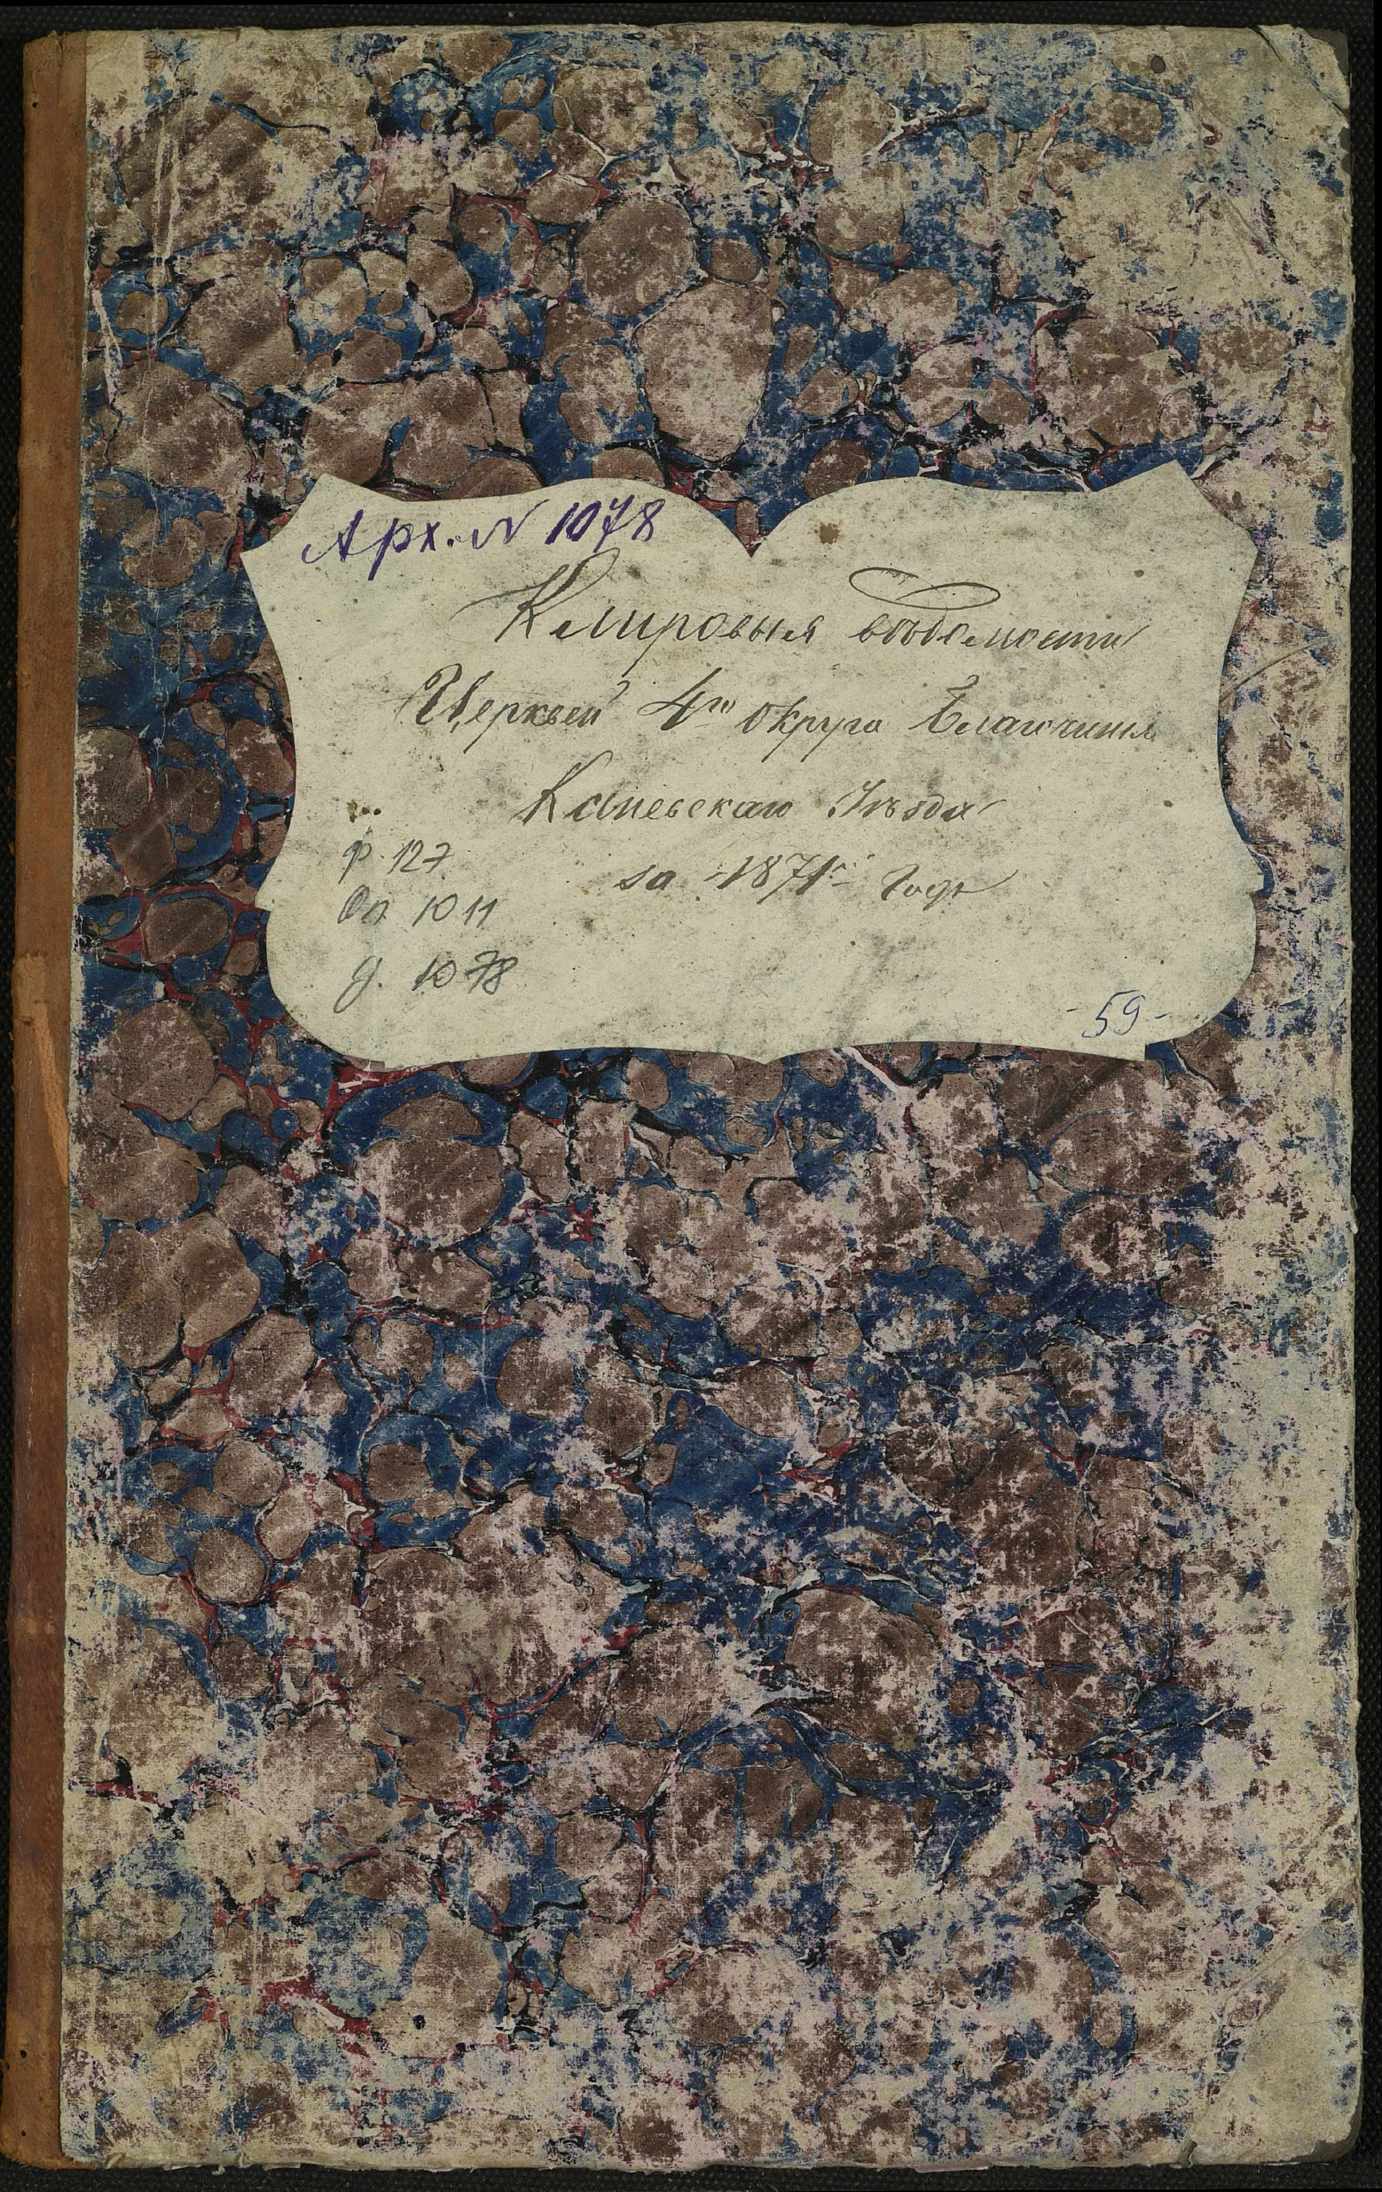 Арх. N 1078
Клировыя вѣдомости
Церквей 4го округа Благочинія
Каневскаго Уѣзда
за 1871й Годъ
ф 127
Оп 1011
д. 1078
-59-